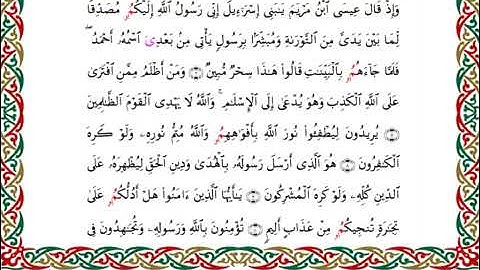 وَإِذْ قَالَ عِيسَى ٱبْنُ مَرْيَمَ يَـٰبَنِىٓ إِسْرَٰٓءِيلَ إِنِّى رَسُولُ ٱللَّهِ إِلَيْكُمُۥ مُصَدِّقًا
لِّمَا بَيْنَ يَدَىَّ مِنَ ٱلتَّوْرَىٰةِ وَمُبَشِّرًۢا بِرَسُولٍ يَأْتِى مِنۢ بَعْدِىَ ٱسْمُهُۥٓ أَحْمَدُ ۖ
فَلَمَّا جَآءَهُمُۥ بِٱلْبَيِّنَـٰتِ قَالُوا۟ هَـٰذَا سِحْرٌ مُّبِينٌ ۝ وَمَنْ أَظْلَمُ مِمَّنِ ٱفْتَرَىٰ
عَلَى ٱللَّهِ ٱلْكَذِبَ وَهُوَ يُدْعَىٰٓ إِلَى ٱلْإِسْلَـٰمِ ۚ وَٱللَّهُ لَا يَهْدِى ٱلْقَوْمَ ٱلظَّـٰلِمِينَ
۝ يُرِيدُونَ لِيُطْفِـُٔوا۟ نُورَ ٱللَّهِ بِأَفْوَٰهِهِمُۥ وَٱللَّهُ مُتِمُّ نُورِهِۦ وَلَوْ كَرِهَ
ٱلْكَـٰفِرُونَ ۝ هُوَ ٱلَّذِىٓ أَرْسَلَ رَسُولَهُۥ بِٱلْهُدَىٰ وَدِينِ ٱلْحَقِّ لِيُظْهِرَهُۥ عَلَى
ٱلدِّينِ كُلِّهِۦ وَلَوْ كَرِهَ ٱلْمُشْرِكُونَ ۝ يَـٰٓأَيُّهَا ٱلَّذِينَ ءَامَنُوا۟ هَلْ أَدُلُّكُمُۥ عَلَىٰ
تِجَـٰرَةٍ تُنجِيكُمُۥ مِّنْ عَذَابٍ أَلِيمٍ ۝ تُؤْمِنُونَ بِٱللَّهِ وَرَسُولِهِۦ وَتُجَـٰهِدُونَ فِى